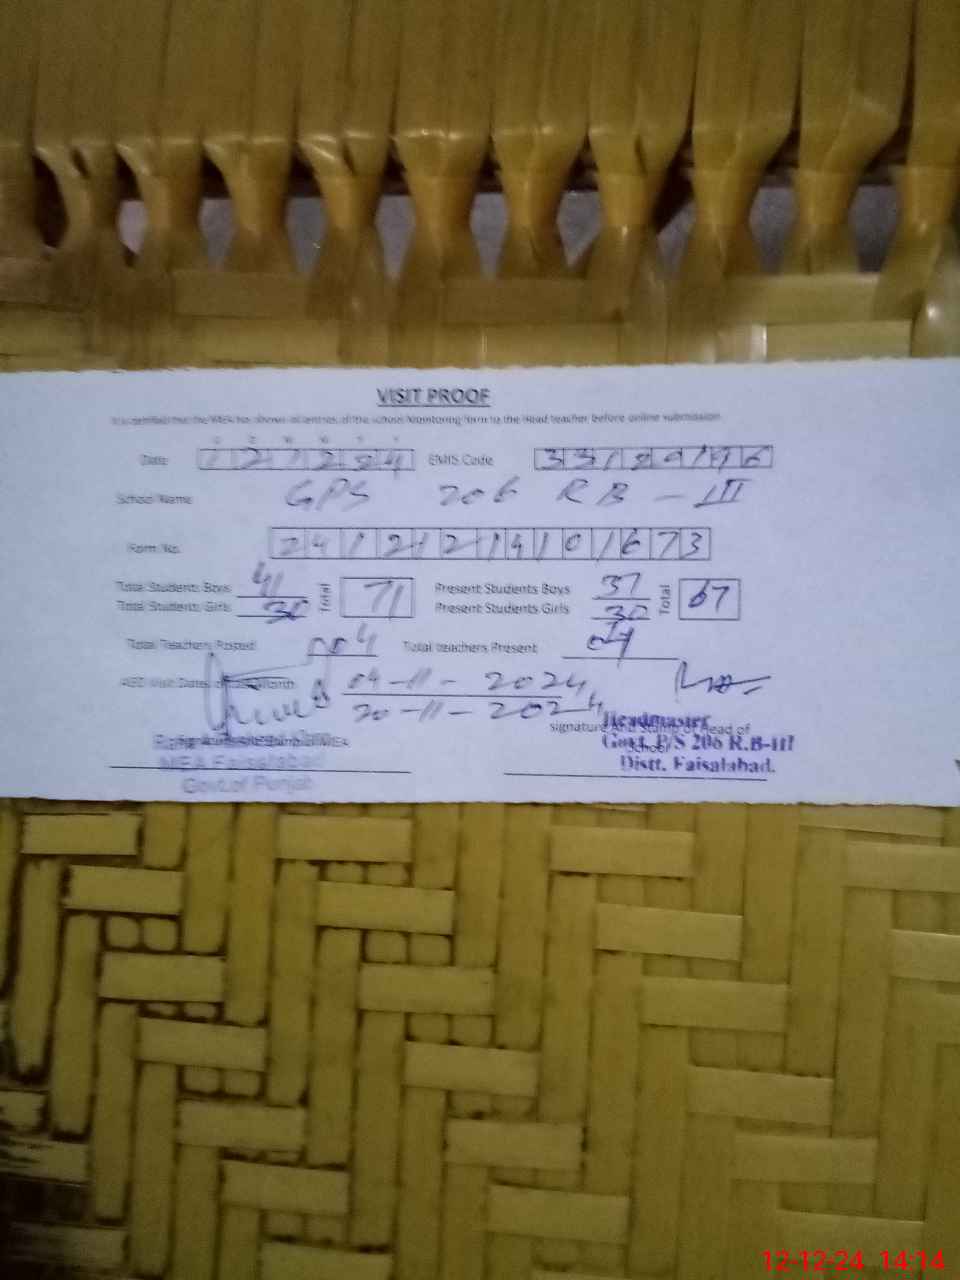 VISIT PROOF
It is certified that the MEA has shown all entries of the school Monitoring form to the Head teacher before online submission
Date 1 2 1 2 2 4 EMIS Code 3 3 1 2 0 1 9 6
School Name GPS 206 RB - III
Form No. 2 4 1 2 1 2 1 4 1 0 1 6 7 3
Total Students Boys 41 Total 71 Present Students Boys 37 Total 67
Total Students Girls 30 Present Students Girls 30
Total Teachers Posted 04 Total teachers Present 04
AEO Visit Dates of Last Month 04-11-2024
20-11-2024
signature And Stamp of Head of School
Headmaster
Govt. P/S 206 R.B-III
Distt. Faisalabad.
MEA Faisalabad
Govt.of Punjab
12-12-24 14:14